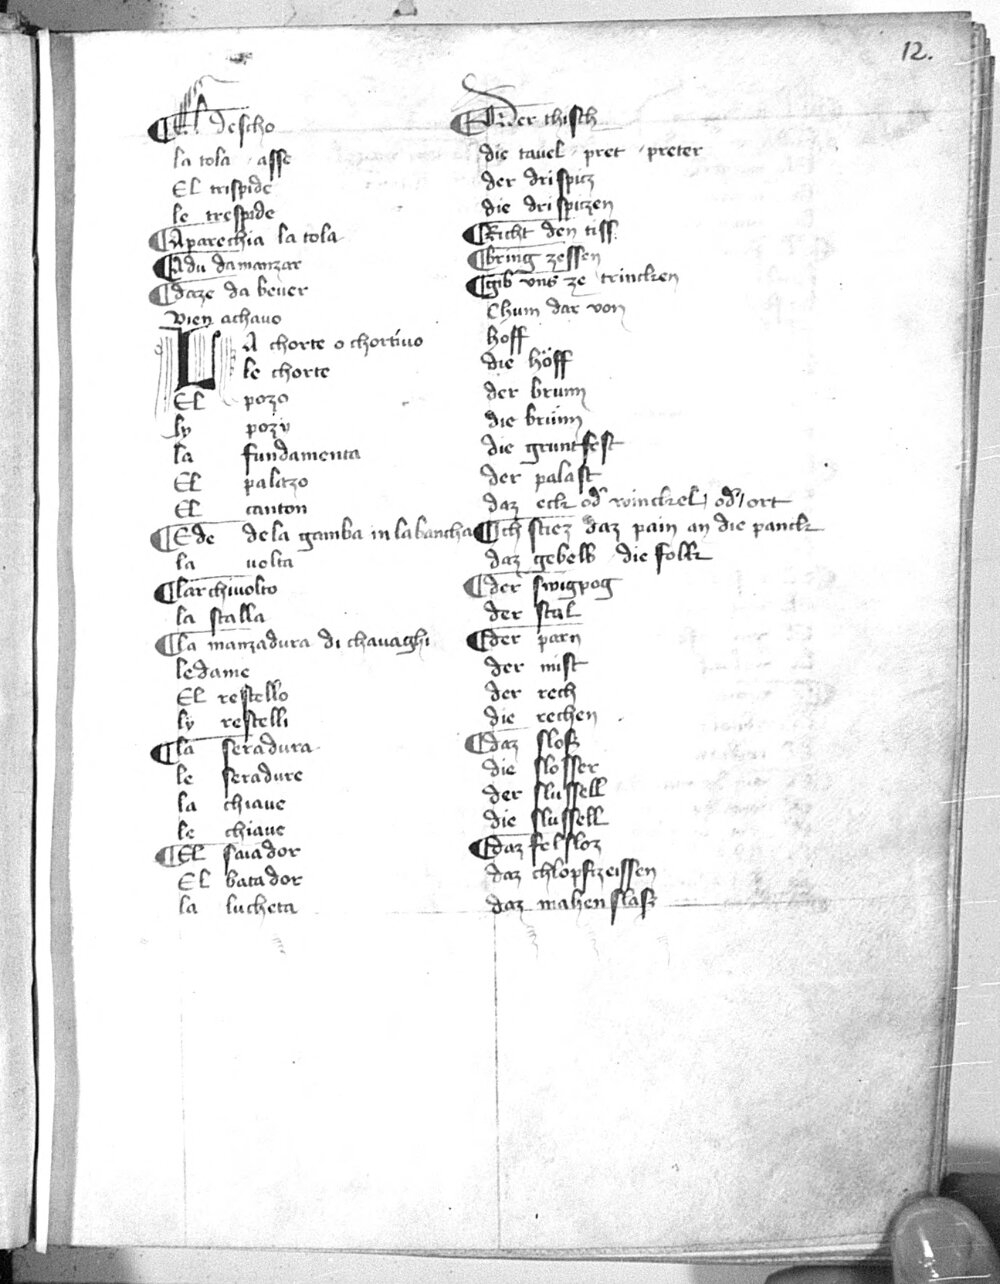 12.
El descho der thisch
la tola / asse die tauel / pret / preter
El trispide der drispitz
le trespide die drispitzen
Aparechia la tola Richt den tiss
Adu damanzar bring zessen
daze da beuer gib vns ze trincken
Vien achauo Chum dar von
LA chorte o chortiuo hoff
le chorte die höff
El pozo der brunn
ly pozy die brünn
la fundamenta die gruntfest
El palitzo der palast
El canton daz eck od' winckel / od' / ort
Ede dela gamba in la bancha Ich stiez daz pain an die panck
la uolta daz gebelb / die folk
larchiuolto der swigpog
la stalla der stal
la manzadura di chauaghi der parn
ledame der mist
El restello der rech
ly restelli die rechen
la seradura daz sloss
le seradure die slosser
la chiaue der slussell
le chiaue die slussell
El saiador daz felsloz
El batador daz chlopfizeissen
la lucheta daz mahenslass